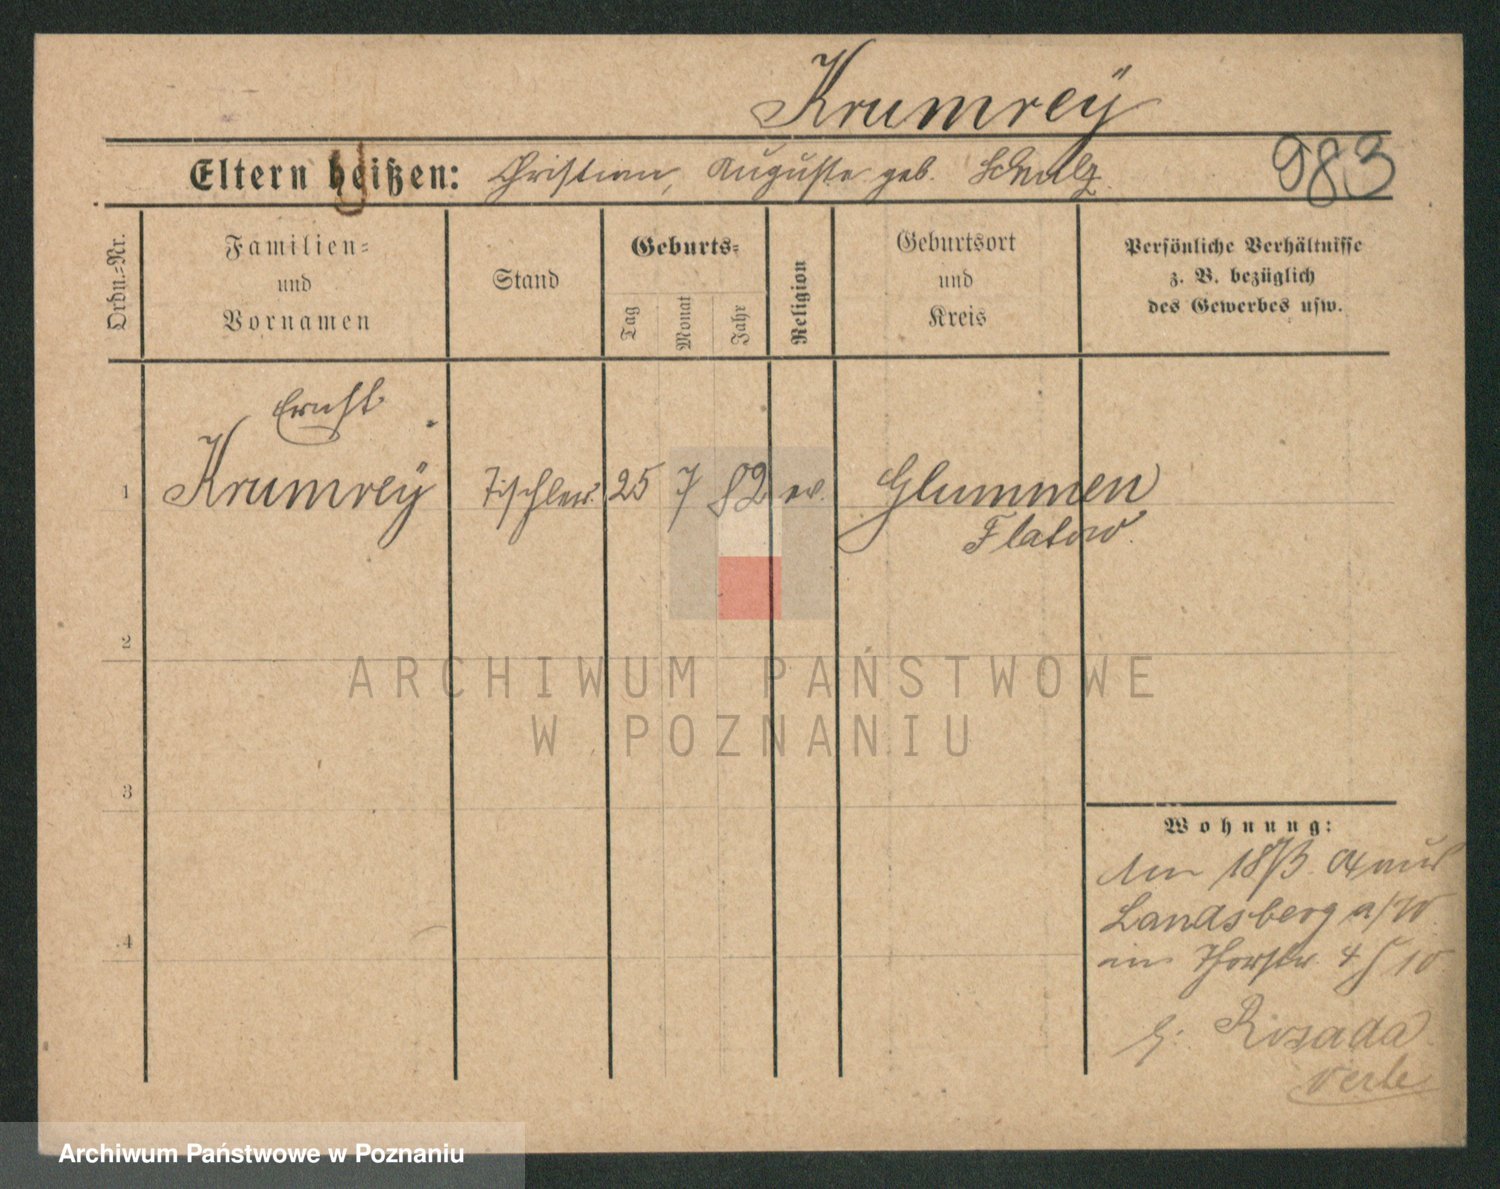 Krumreÿ
Eltern heißen: Christian, Auguste geb. Schulz
983
Ordn.-Nr.
Familien-
und
Vornamen
Stand
Geburts-
Tag
Monat
Jahr
Religion
Geburtsort
und
Kreis
Persönliche Verhältnisse
z. B. bezüglich
des Gewerbes usw.
Ernst
1 Krumreÿ Tischler 25 7 82 ev. Glummen
Flatow
2
ARCHIWUM PAŃSTWOWE
W POZNANIU
3
Wohnung:
Am 18/3. 04 aus
Landsberg a/W.
in Thorstr. 10
4
b. Rosada
Archiwum Państwowe w Poznaniu